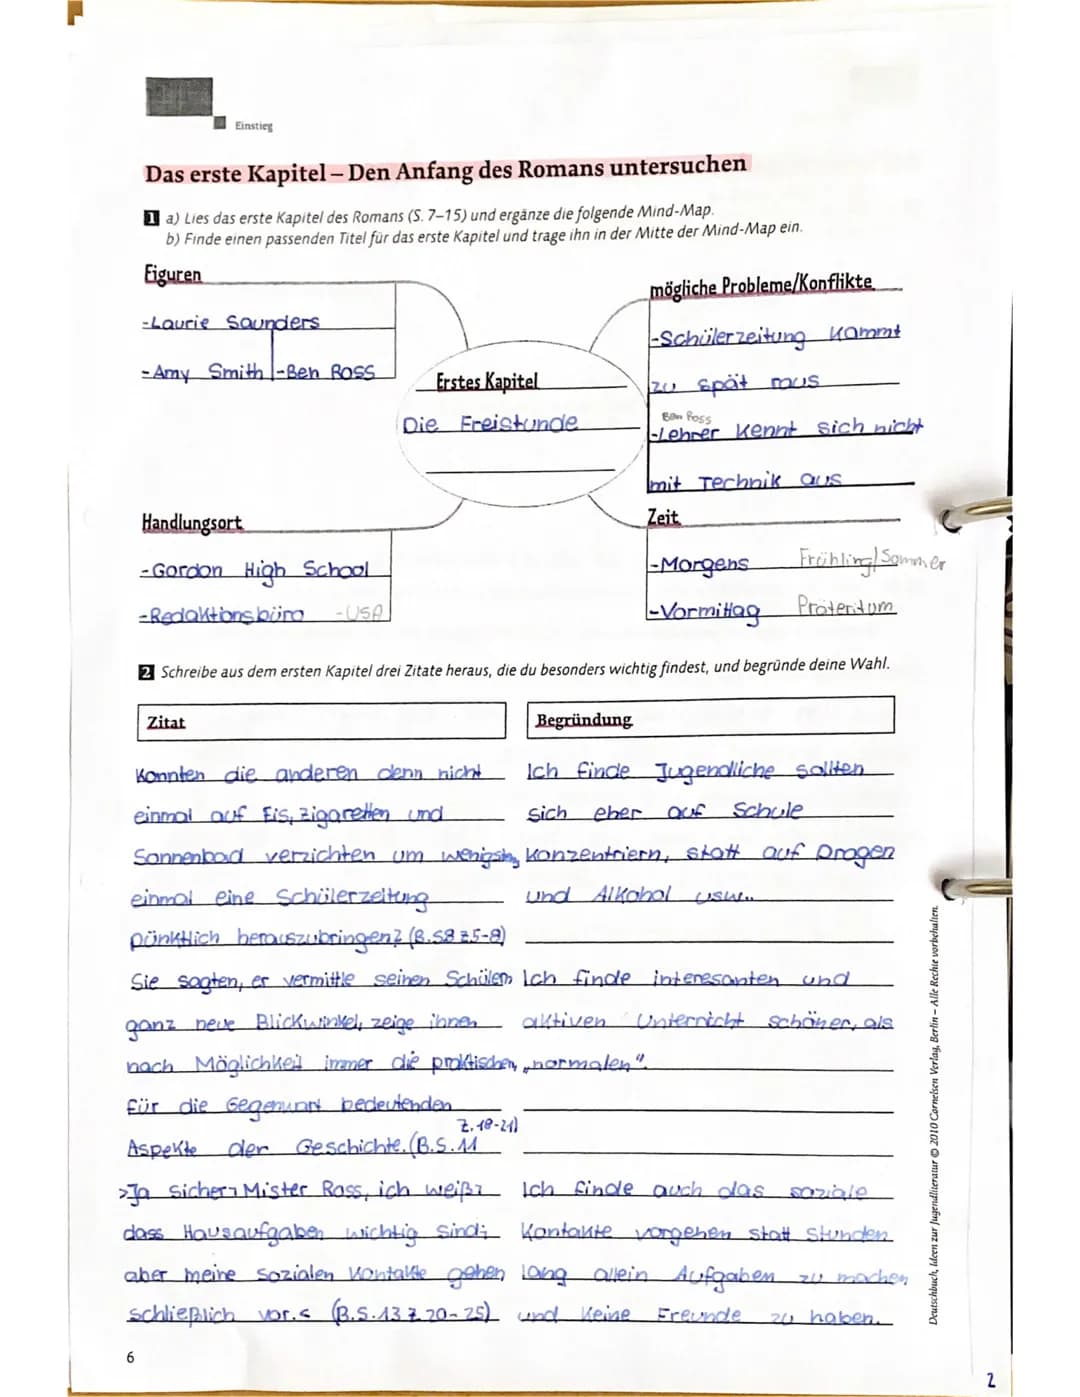 Einstieg
Das erste Kapitel – Den Anfang des Romans untersuchen
1 a) Lies das erste Kapitel des Romans (S. 7–15) und ergänze die folgende Mind-Map.
b) Finde einen passenden Titel für das erste Kapitel und trage ihn in der Mitte der Mind-Map ein.
Figuren
-Laurie Saunders
-Amy Smith -Ben Ross
Erstes Kapitel
Die Freistunde
mögliche Probleme/Konflikte
-Schülerzeitung kommt
zu spät raus
Ben Ross
-Lehrer kennt sich nicht
mit Technik aus
Handlungsort
-Gordon High School
-Redaktionsbüro -USA
Zeit
-Morgens Frühling/Sommer
-Vormittag Präteritum
2 Schreibe aus dem ersten Kapitel drei Zitate heraus, die du besonders wichtig findest, und begründe deine Wahl.
Zitat
Konnten die anderen denn nicht
einmal auf Eis, Zigaretten und
Sonnenbad verzichten um wenigstns
einmal eine Schülerzeitung
pünktlich herauszubringen? (B.S8 Z5-8)
Sie sagten, er vermittle seinen Schülern
ganz neue Blickwinkel, zeige ihnen
nach Möglichkeit immer die praktischen,
für die Gegenwart bedeutenden
Z. 18-21)
Aspekte der Geschichte. (B.S.11
>Ja sicher, Mister Ross, ich weiß,
dass Hausaufgaben wichtig sind;
aber meine sozialen Kontakte gehen
schließlich vor.< (B.S.13 Z 20-25)
Begründung
Ich finde Jugendliche sollten
sich eher auf Schule
konzentriern, statt auf Drogen
und Alkohol usw..
Ich finde interesanten und
aktiven Unterricht schöner, als
„normalen“.
Ich finde auch das soziale
Kontakte vorgehen statt Stunden
lang allein Aufgaben zu machen
und keine Freunde zu haben.
Deutschbuch, Ideen zur Jugendliteratur © 2010 Cornelsen Verlag, Berlin – Alle Rechte vorbehalten.
6
2